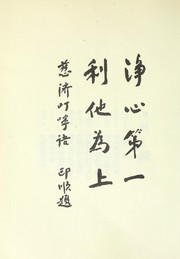 淨心第一
利他為上
慈濟叮嚀語 印順題